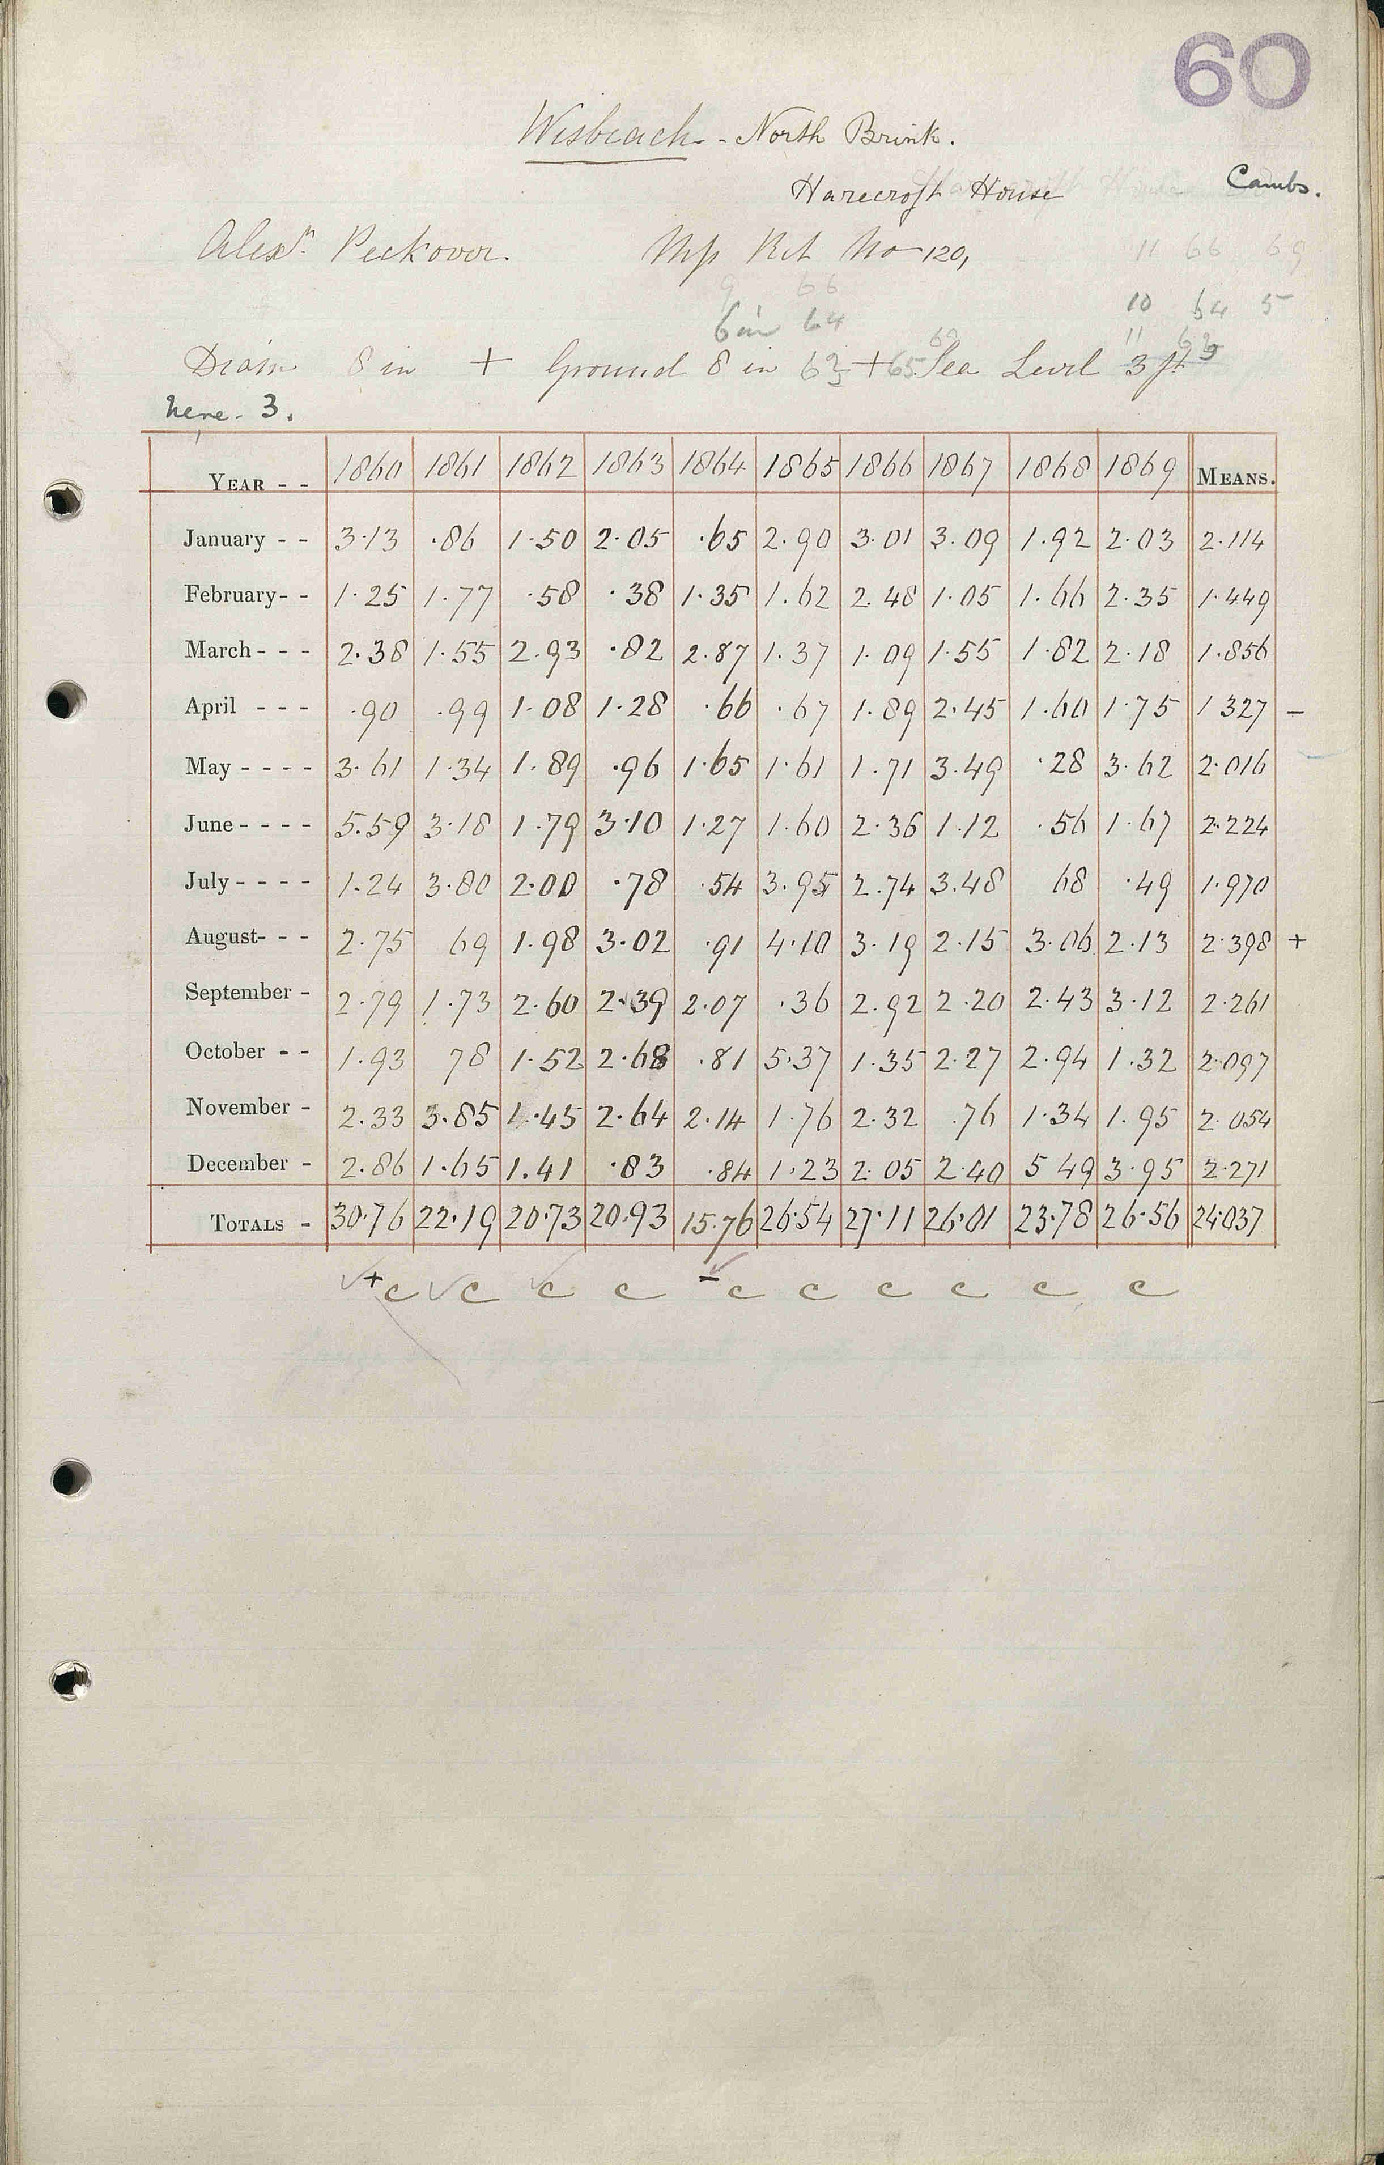 60
Wisbeach - North Brink.
Harecroft House Cambs.
Alexr. Peckover. Mss Ret No 120,
11 66 69
9 66
10 64 5
6 in 64
Diam 8 in + Ground 8 in 63 + 65 Sea Level 3 ft
Nene. 3.
YEAR - - 1860 1861 1862 1863 1864 1865 1866 1867 1868 1869 MEANS.
January - - 3.13 .86 1.50 2.05 .65 2.90 3.01 3.09 1.92 2.03 2.114
February - - 1.25 1.77 .58 .38 1.35 1.62 2.48 1.05 1.66 2.35 1.449
March - - - 2.38 1.55 2.93 .82 2.87 1.37 1.09 1.55 1.82 2.18 1.856
April - - - .90 .99 1.08 1.28 .66 .67 1.89 2.45 1.60 1.75 1 327 -
May - - - - 3.61 1.34 1.89 .96 1.65 1.61 1.71 3.49 .28 3.62 2.016
June - - - - 5.59 3.18 1.79 3.10 1.27 1.60 2.36 1.12 .56 1.67 2.224
July - - - - 1.24 3.80 2.00 .78 .54 3.95 2.74 3.48 68 .49 1.970
August - - - 2.75 69 1.98 3.02 .91 4.10 3.19 2.15 3.06 2.13 2.398 +
September - 2.79 1.73 2.60 2.39 2.07 .36 2.92 2.20 2.43 3.12 2.261
October - - 1.93 78 1.52 2.68 .81 5.37 1.35 2.27 2.94 1.32 2.097
November - 2.33 3.85 1.45 2.64 2.14 1.76 2.32 .76 1.34 1.95 2.054
December - 2.86 1.65 1.41 .83 .84 1.23 2.05 2.40 5 49 3.95 2.271
TOTALS - 30.76 22.19 20.73 20.93 15.76 26.54 27.11 26.01 23.78 26.56 24.037
+ c c c c - c c c c c c